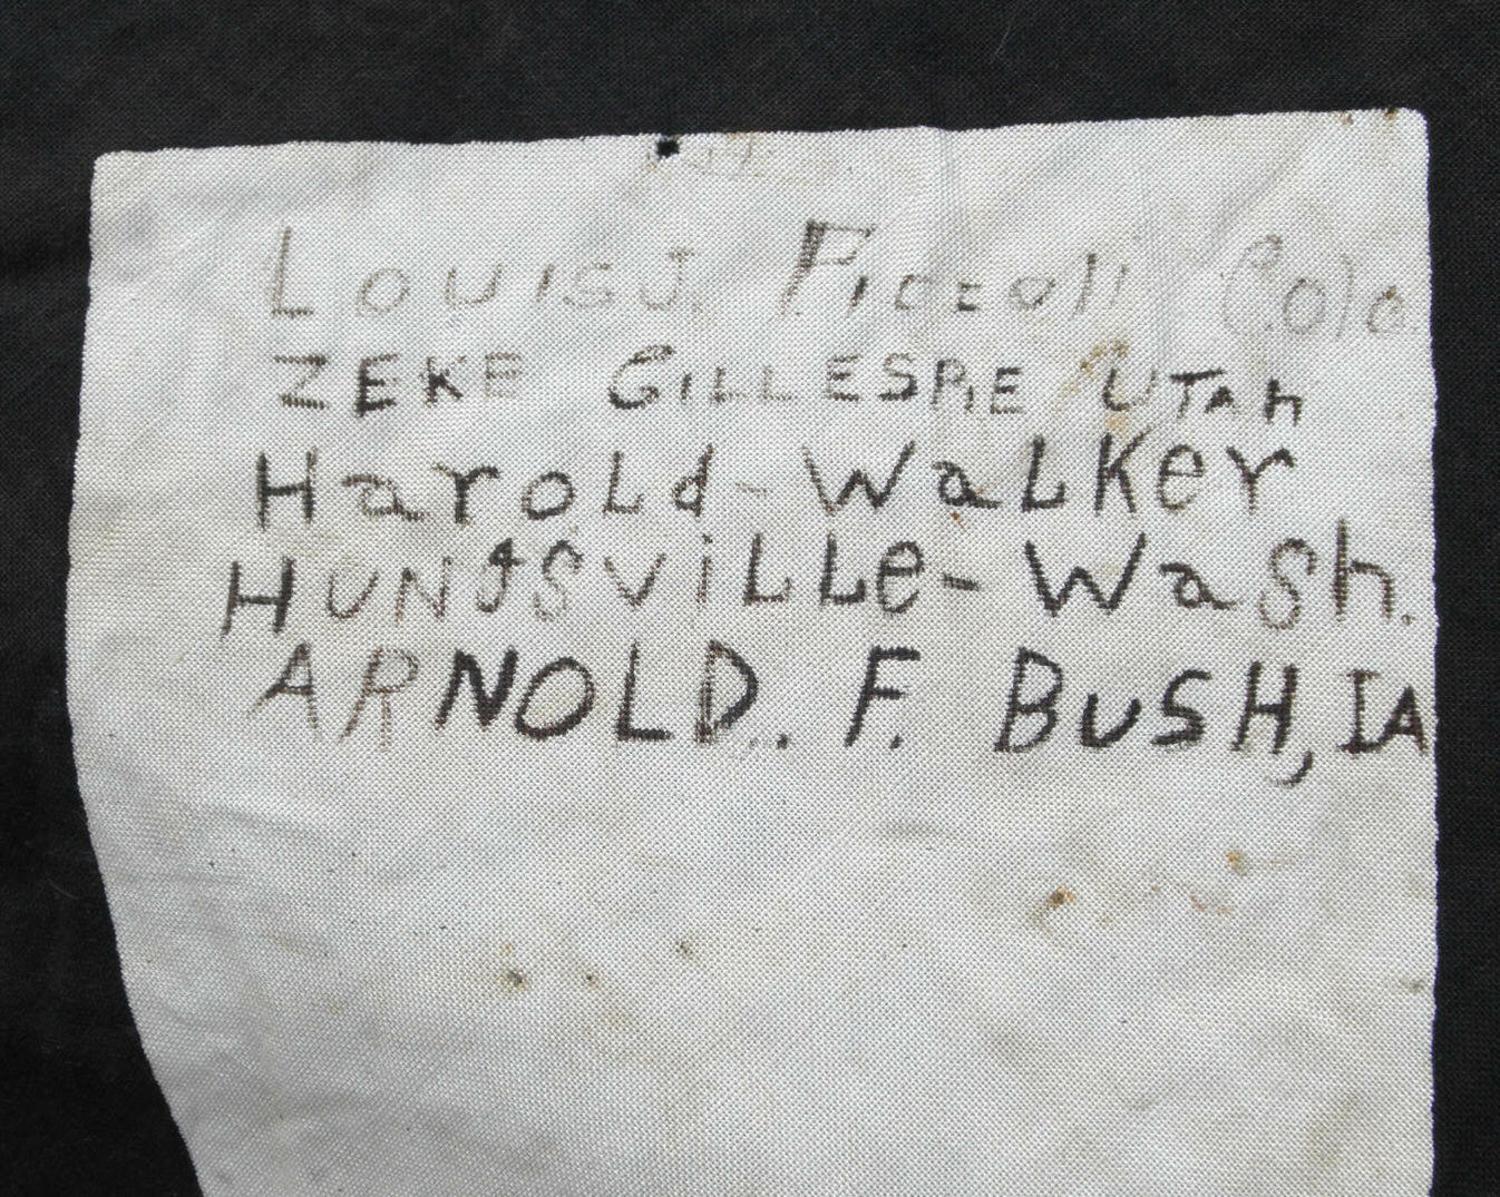 LOUIS J. Colo.
ZEKE GILLESPIE UTAH
HaroLd - WaLKer
HUNtSViLLe - Wash.
ARNOLD. F. BUSH, IA